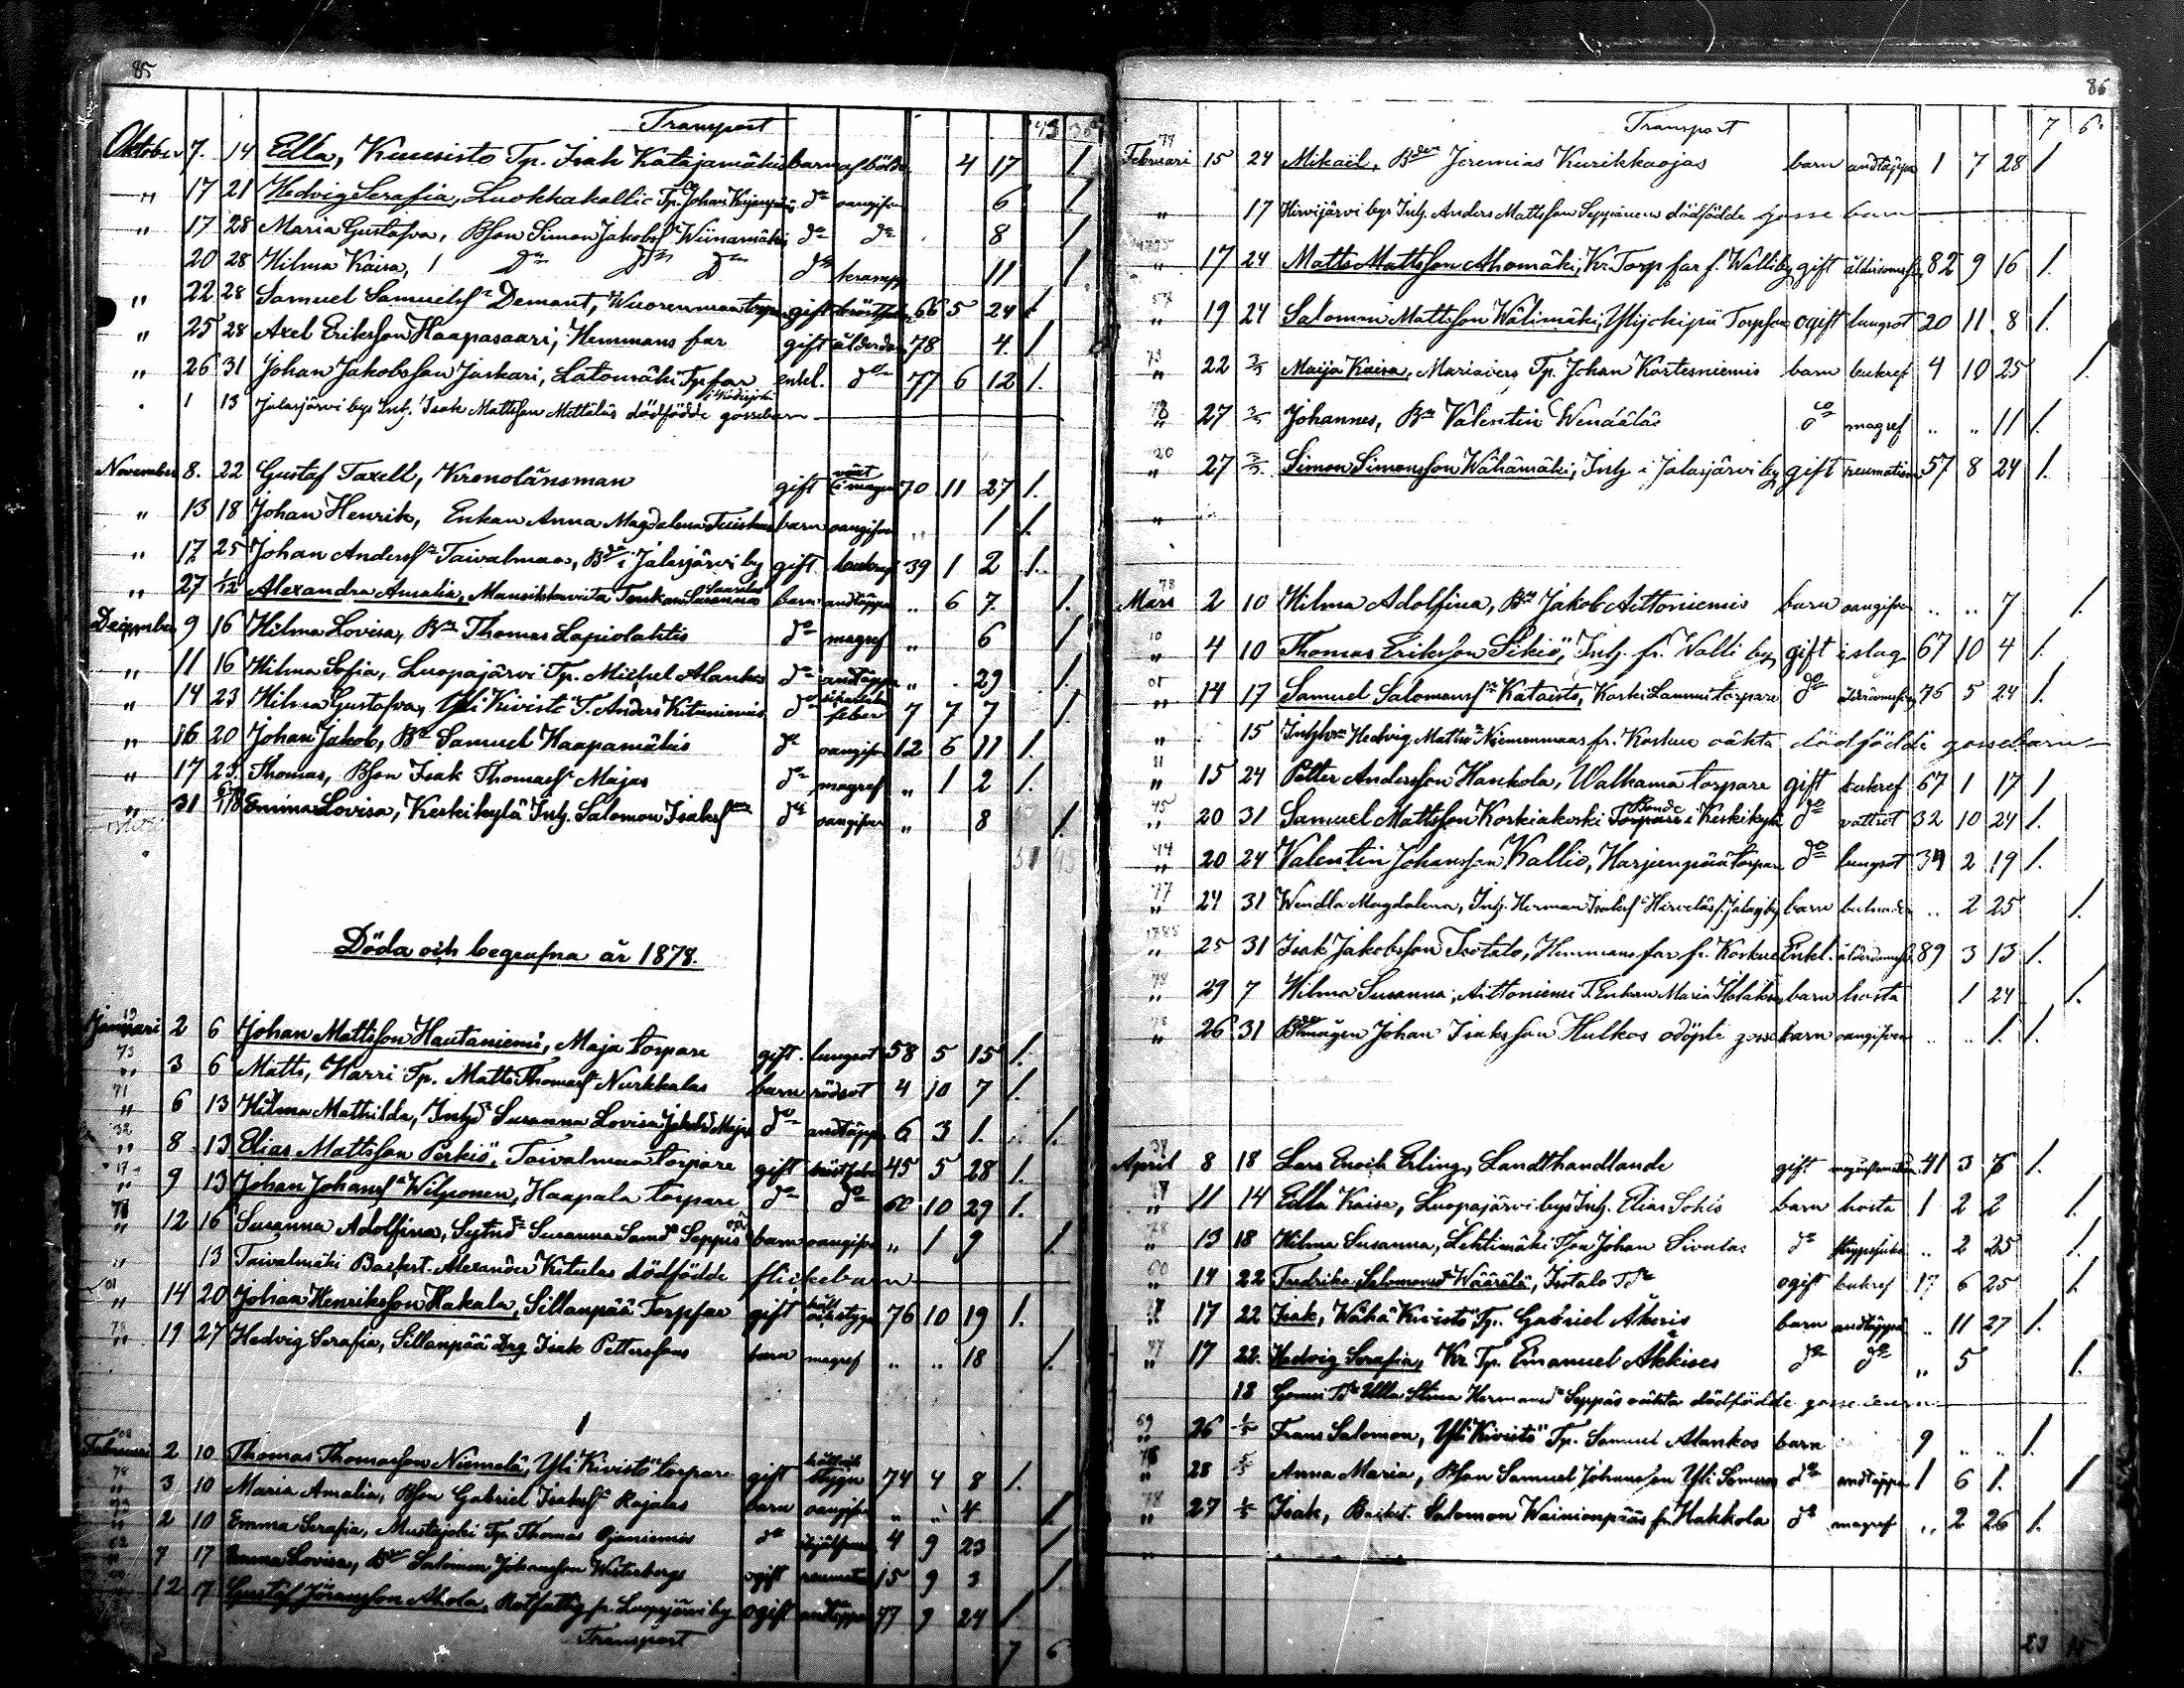 85
Transport 43 38
Oktober 7. 14 Ella, Kuusisto Tp. Isak Katajamäkis barn af bölder 4 17 1
" 17 21 Hedvig Serafia, Luokkakallio Tp. Johan dº oangifven 6 1
" 17 28 Maria Gustafva, Bson Simon Jakobss. Wiinamäkis dº dº 8 1
20 28 Hilma Kaisa, dº dº dº dº kramp 11 1
" 22 28 Samuel Samuelss. Demant, Wuorenmaa torpare gift bröstfeber 66 5 24 1
" 25 28 Axel Eriksson Haapasaari, Hemmans far gift ålderdom 78 4. 1
" 26 31 Johan Jakobsson Jaskari, Latomäki Tp far enkl. dº 77 6 12 1.
1 13 Jalasjärvi bys Inh. Isak Mattsson Mettäläs dödfödde gossebarn
November 8. 22 Gustaf Taxell, Kronolänsman gift värt i magen 70 11 27 1.
" 13 18 Johan Henrik, Enkan Anna Magdalena barn oangifven " 1 1.
" 17 25 Johan Anderss. Taivalmaa, Bde i Jalasjärvi by gift 39 1 2 1.
" 27 1/12 Alexandra Amalia, Mansikkaviita Enkan Susanna barn andtäppa " 6 7. 1.
December 9 16 Hilma Lovisa, Bdn Thomas Lapiolahtis dº magref " 6 1
" 11 16 Hilma Sofia, Luopajärvi Tp. Michel Alankos dº andtäppa " 29 1.
" 14 23 Hilma Gustafva, Yli Kivistö T. Anders Kituniemis dº feber 7 7 7 1
" 16 20 Johan Jakob, Bdn Samuel Haapamäkis dº oangifven 12 6 11 1.
" 17 23. Thomas, Bson Isak Thomass. Majas dº magref " 1 2 1.
" 31 6/1 78 Emma Lovisa, Keskikylä Inh. Salomon Isakss. dº oangifven " 8 1.
51 45
Döda och begrafna år 1878.
Januari 2 6 Johan Mattsson Hautaniemi, Maja torpare gift. lungsot 58 5 15 1.
73 " 3 6 Matts, Harri Tp. Matts Thomass. Nurkkalas barn rödsot 4 10 7 1.
71 " 6 13 Hilma Mathilda, Inh. Susanna Lovisa Jakobsd. Majas dº andtäppa 6 3 1. 1.
32 " 8 13 Elias Mattsson Perkiö, Taivalmaa torpare gift bröstfeber 45 5 28 1.
17 " 9 13 Johan Johanss. Wilponen, Haapala torpare dº dº 60 10 29 1.
78 " 12 16 Susanna Adolfina, Sytnd. Susanna Samd. Seppis oä barn oangifven " 1 9 1.
" 13 Taivalmäki Alexander Kitulas dödfödde flickebarn
01 " 14 20 Johan Henriksson Hakala, Sillanpää Torpfar gift håll och stygn 76 10 19 1.
78 " 19 27 Hedvig Serafia, Sillanpää Drg Isak Petterssons barn magref " " 18 1.
Februari 2 10 Thomas Thomasson Niemelä, Yli Kivistö torpare gift stygn 74 4 8 1.
78 " 3 10 Maria Amalia, Bson Gabriel Isakss. Rajalas barn oangifven " " 4 1.
" 2 10 Emma Serafia, Mustajoki Tp. Thomas Ojaniemis dº 4 9 23 1
" 7 17 Emma Lovisa, Bde Salomon Johansson Westerbergs ogift reumatism 15 9 3 1.
" 12 17 Gustaf Göransson Ahola, fr. Luopajärvi by ogift andtäppa 77 9 24 1
Transport 7 6
86
Transport 7 6
77 Februari 15 24 Mikael, Bden Jeremias Kurikkaojas barn andtäppa 1 7 28 1.
" 17 Hirvijärvi bys Inh. Anders Mattsson Seppänens dödfödde gosse barn
" 17 24 Matts Mattsson Ahomäki, Kr. Torp far f. Walli by gift ålderdomssv 82 9 16 1.
57 " 19 24 Salomon Mattsson Wälimäki, Torpson ogift lungsot 20 11 8 1.
73 " 22 3/3 Maija Kaisa, Mariavers Tp. Johan Kortesniemis barn bukref 4 10 25 1.
78 " 27 3/3 Johannes, Bdn Valentin Wendäläs dº magref " " 11 1.
20 " 27 3/3 Simon Simonsson Wähämäki, Inh. i Jalasjärvi by gift reumatism 57 8 24 1.
"
78 Mars 2 10 Hilma Adolfina, Bdn Jakob Aittoniemis barn oangifven " " 7 1.
10 " 4 10 Thomas Eriksson Sikiö, Inh. fr. Walli by gift i slag 67 10 4 1.
01 " 14 17 Samuel Salomonss. Kataisto, Koski Lammi torpare dº ålderdomssv 76 5 24 1.
" 15 Hedvig Mattsd. Niemenmaas fr. Koskue oäkta dödfödde gossebarn
11 " 15 24 Petter Andersson Hankola, Walkama torpare gift bukref 67 1 17 1
45 " 20 31 Samuel Mattsson Koskiakoski Torpare Bonde i Keskikylä dº vattsot 32 10 24 1.
44 " 20 24 Valentin Johansson Kallio, Harjunpää torpare dº lungsot 34 2 19 1.
77 " 24 31 Wendla Magdalena, Inh. Herman Isakss. Hirveläs f. Jalasj. by barn " 2 25 1.
1788 " 25 31 Isak Jakobsson Isotalo, Hemmans far fr. Koskue Enkl. ålderdomssv. 89 3 13 1.
78 " 29 7 Hilma Susanna, Aittoniemi T. Enkan Maria barn hosta 1 24 1.
78 " 26 31 Bdemågen Johan Isaksson Hulkos odöpte gossebarn oangifven " " 1. 1.
37 April 8 18 Lars Enoch Erling, Landthandlande gift maginflamation 41 3 6 1.
77 " 11 14 Edla Kaisa, Luopajärvi bys Inh. Elias Sohis barn hosta 1 2 2 1.
78 " 13 18 Hilma Susanna, Lehtimäki Tson Johan Sivulas dº " 2 25 1.
60 " 14 22 Fredrika Salomonsd. Wäärälä, Isotalo Td. ogift bukref 17 6 25 1
" 17 22 Isak, Wähä Kivistö Tp. Gabriel Åkeris barn andtäppa " 11 27 1.
77 " 17 22. Hedvig Serafia, Kr. Tp. Emanuel Äkkises dº dº " 5 1.
18 Td. Ulla Stina Hermansd. Seppäs oäkta dödfödde gosse barn
69 " 26 1/5 Frans Salomon, Yli Kivistö Tp. Samuel Alankos barn 9 " " 1.
76 " 28 5/5 Anna Maria, Bson Samuel Johansson Yli dº andtäppa 1 6 1. 1
78 " 27 1/5 Isak, Salomon Wainionpääs fr. Hakkola dº magref " 2 26 1.
"
23 15